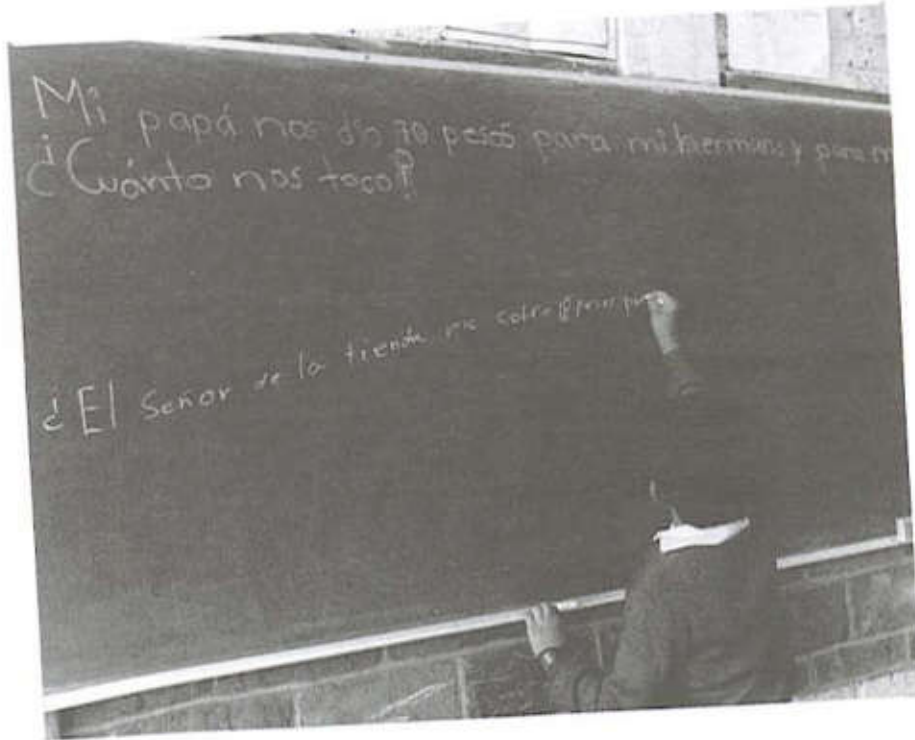 Mi papá nos dio 70 pesos para mi hermano y para m
¿Cuánto nos toco?
¿El Señor de la tienda me cobro